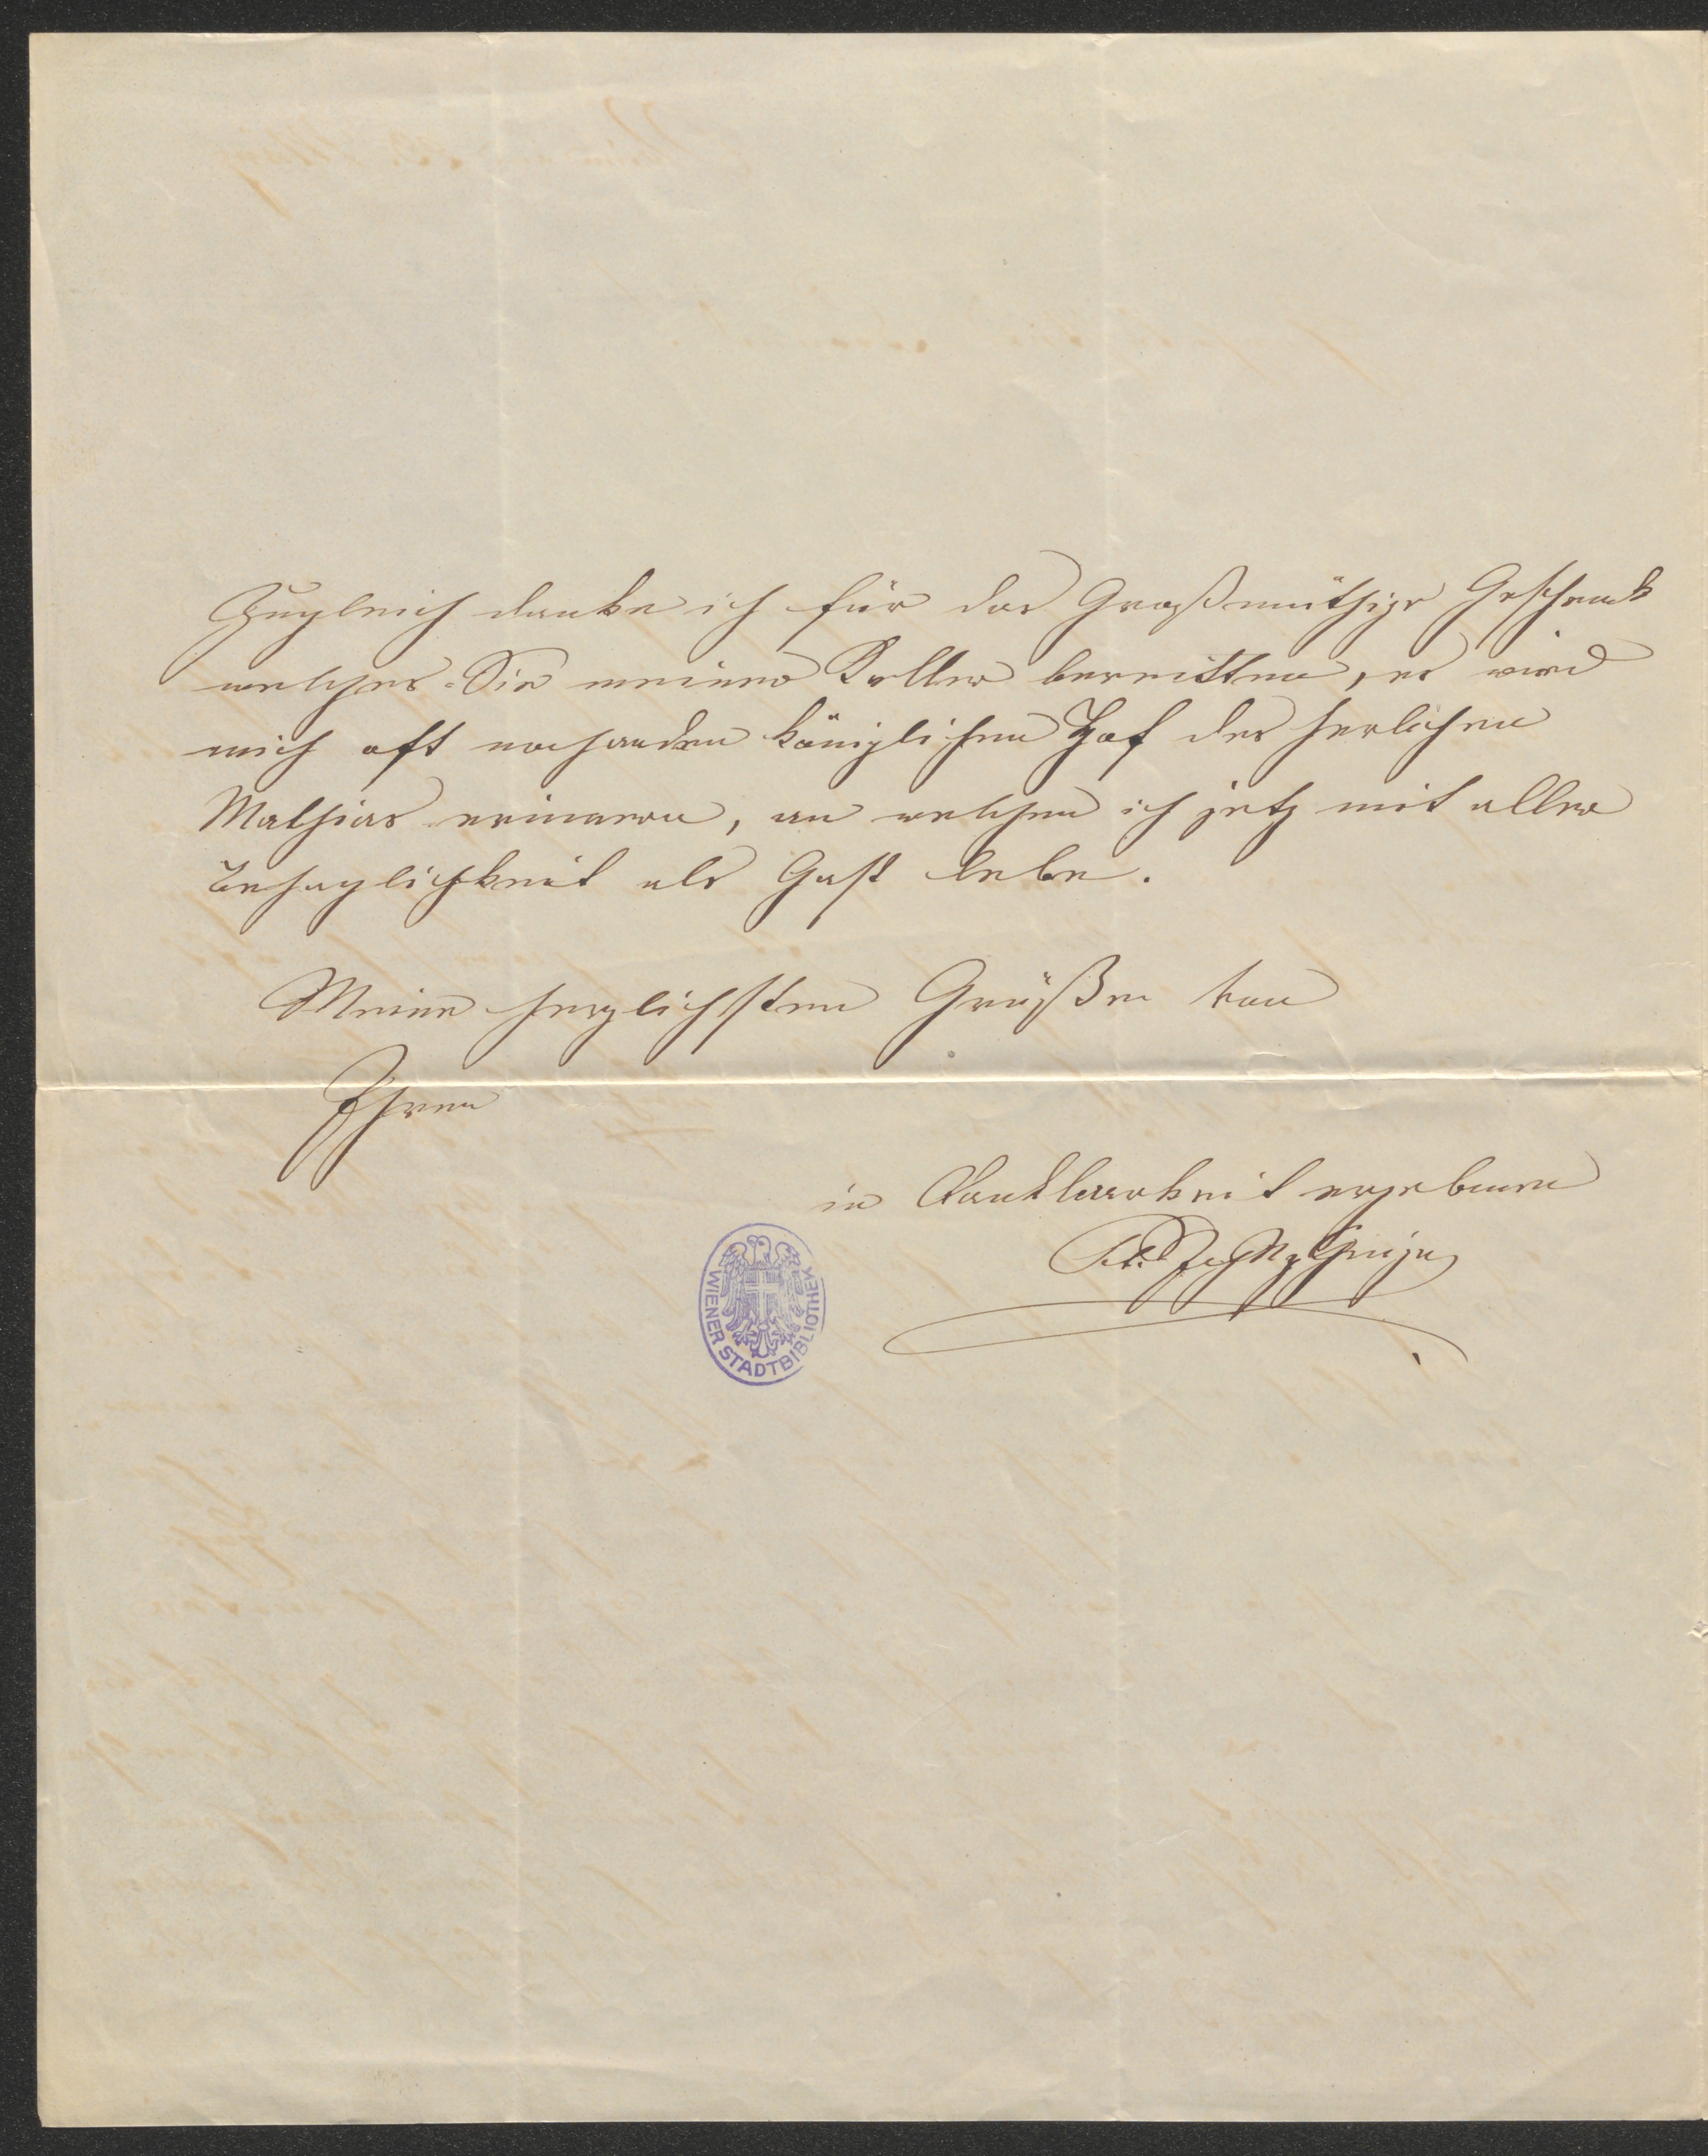 Zugleich danke ich für das Großmüthige Geschenk
welches Sie meiner Keller bereitten, es wird
mich oft noch an den königlichen Hof des herlichen
Mathias erinnern, an welchen ich jetz mit aller
Behaglichkeit als Gast lebe.
Meine herzlichsten Grüßen von
Ihren
in Dankbarkeit ergebenen
WIENER STADTBIBLIOTHEK